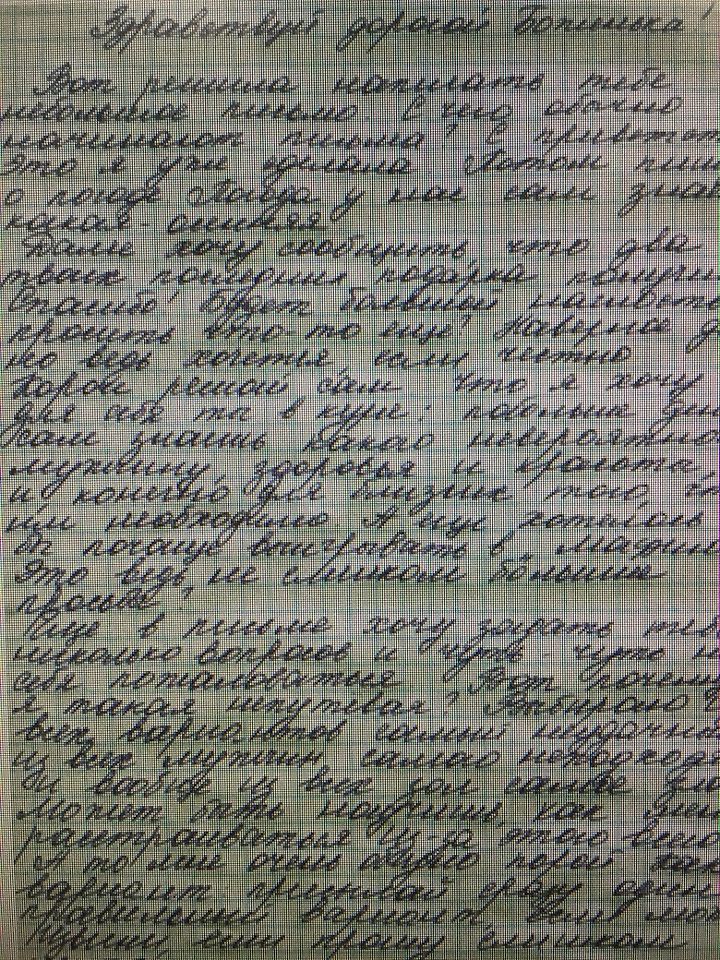 Здравствуй дорогой Боженька!
Вот решила написать тебе
небольшое письмо. С чего обычно
начинают письма? С приветст
это я уже сделала. Потом пиш
о погоде. Погода у нас сам знае
какая-
Далее хочу сообщить, что два
твоих последних подарка получи
Спасибо! Будет большой наглость
просить что-то еще? Наверное д
но ведь хочется, если честно
решай сам. Что я хочу
для себя ты в курсе: побольше
сам знаешь какого невероятно
мужчину, здоровья и красоты,
и конечно для близких того, ч
им необходимо. А еще хотелось
бы почаще выигрывать в мафию
Это ведь не слишком большие
просьбы?
Еще в письме хочу задать теб
несколько вопросов и чуть-чуть н
себя пожаловаться. Вот почему
я такая непутевая? Выбираю
всех вариантов самый неудачны
из всех мужчин самого неподход
И вообще из всех зол самое
Может быть научишь, как
расстраиваться из-за этого
А то мне очень порой
вариант придумай сразу один
правильный вариант, если мож
Извини, если прошу слишком